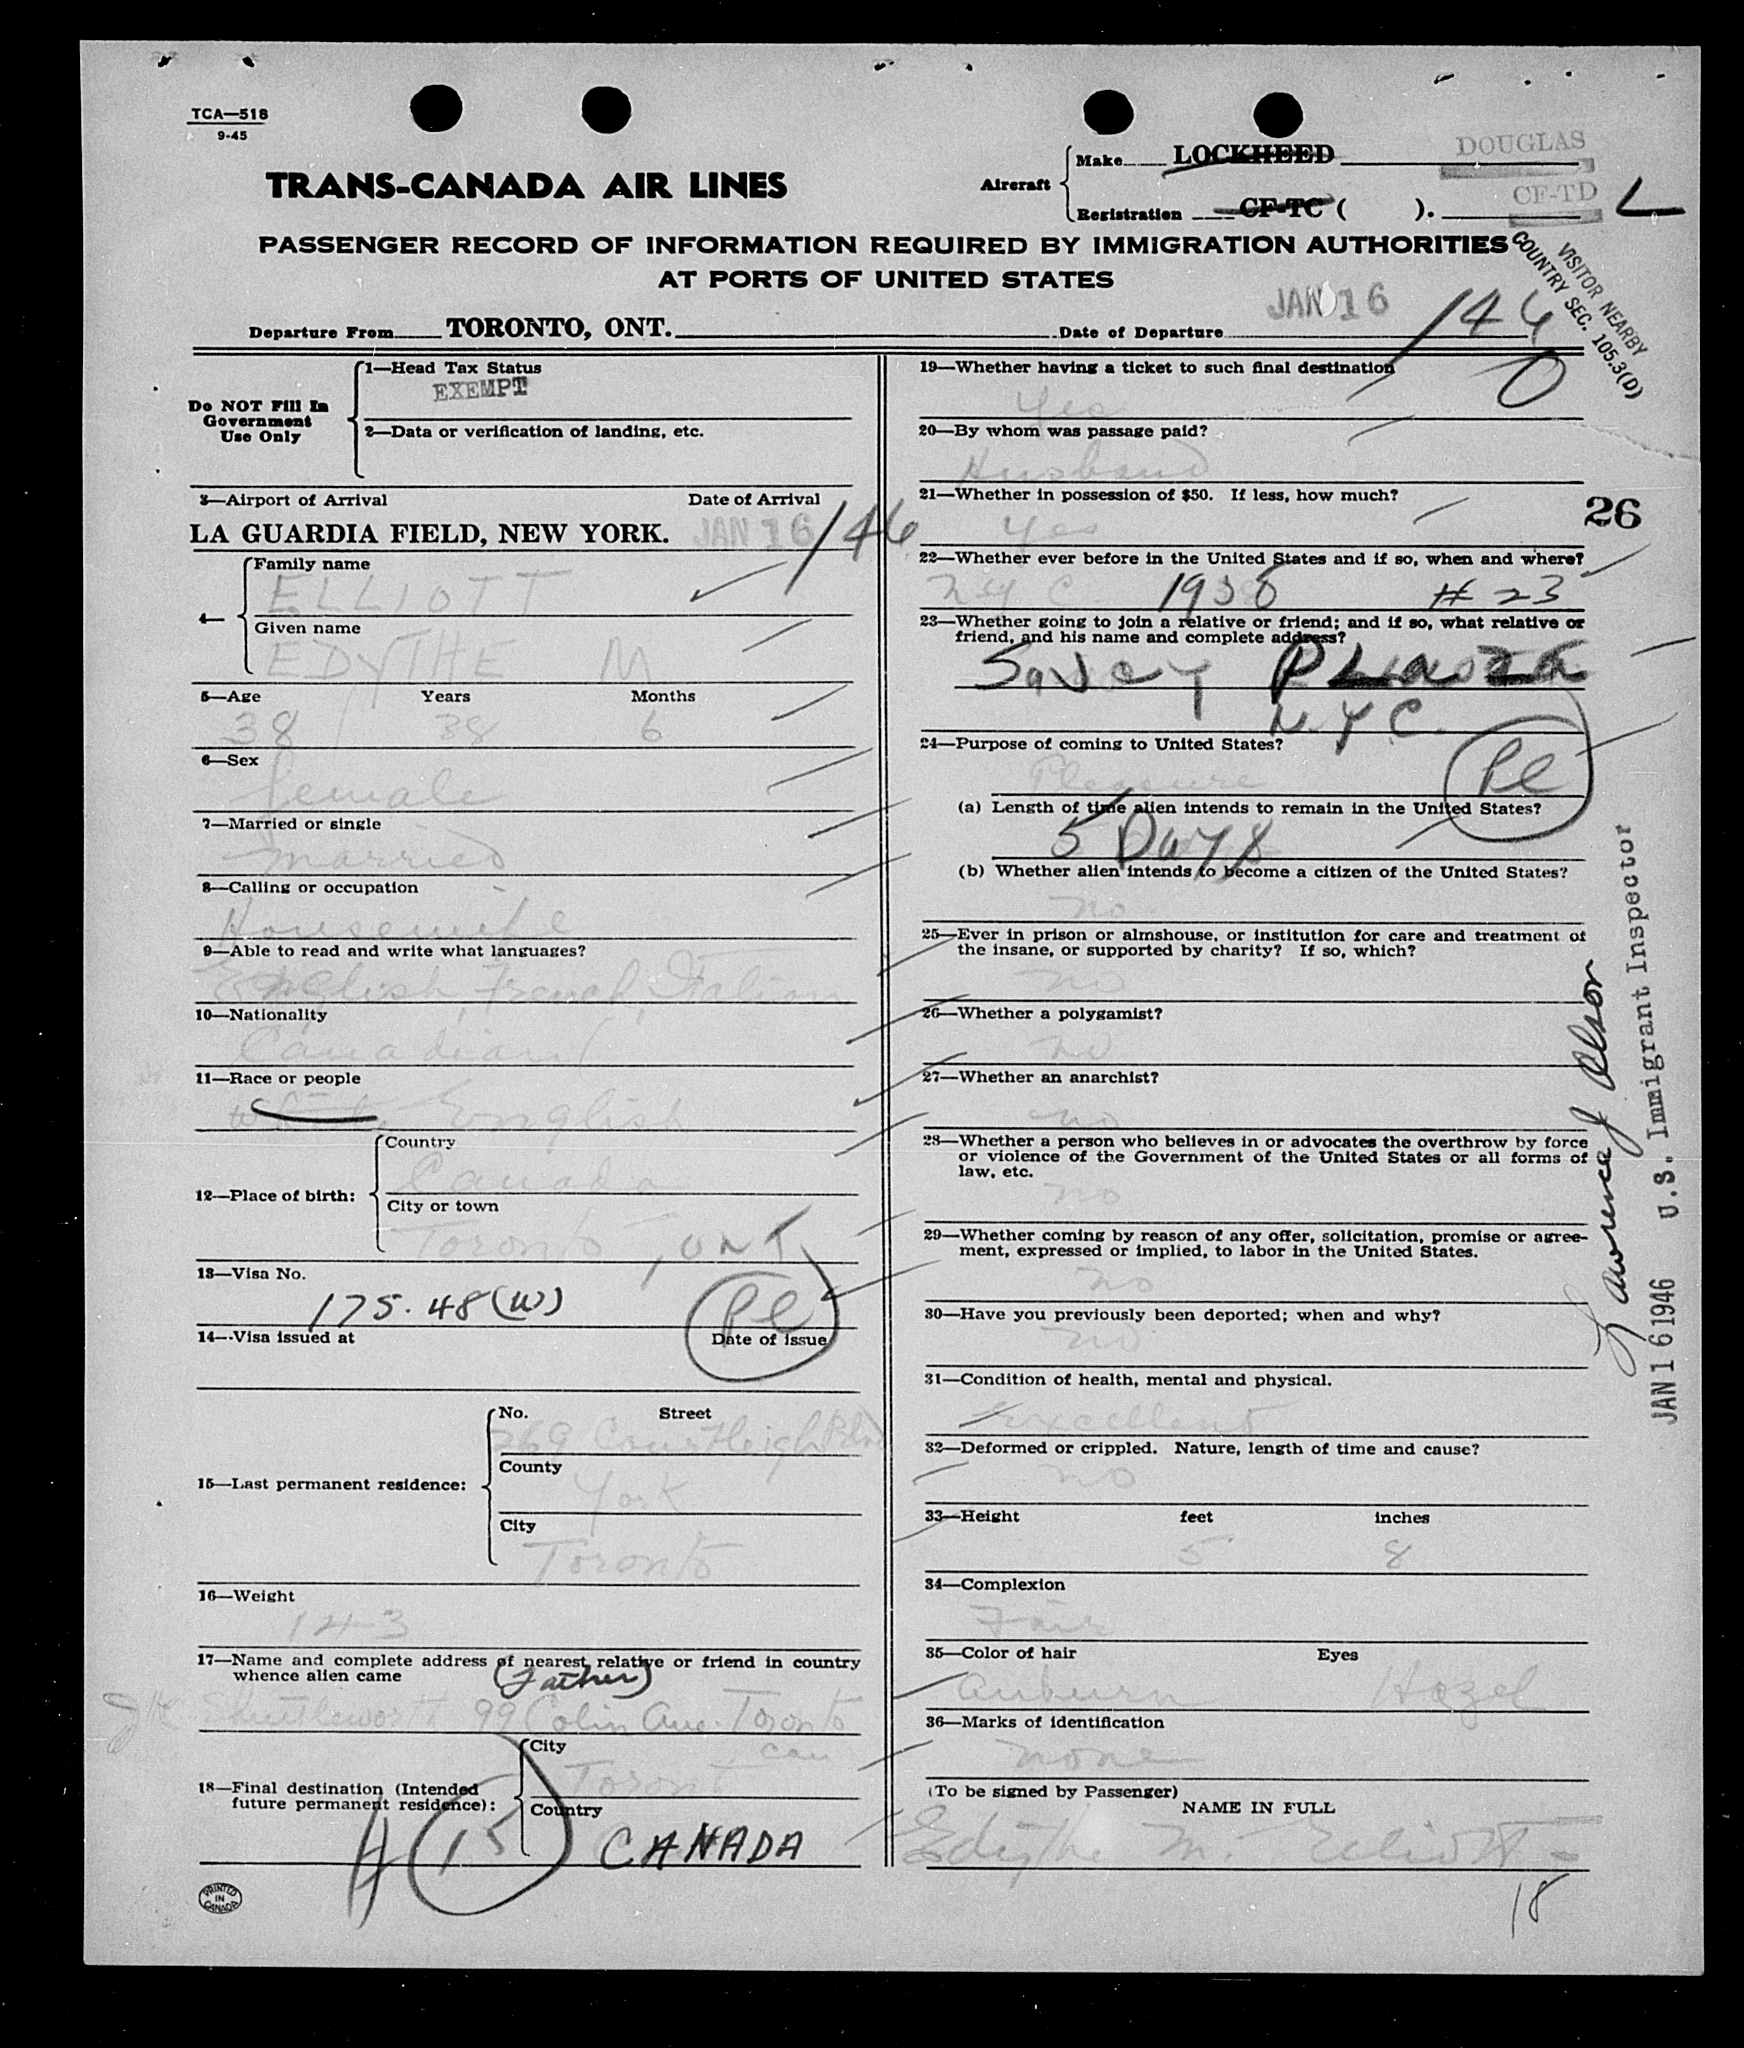 TCA—518
9-45
TRANS-CANADA AIR LINES
Aircraft
Make LOCKHEED DOUGLAS
Registration CF-TC ( ). CF-TD L
PASSENGER RECORD OF INFORMATION REQUIRED BY IMMIGRATION AUTHORITIES
AT PORTS OF UNITED STATES
VISITOR NEARBY
COUNTRY SEC. 105.3(D)
Departure From TORONTO, ONT. Date of Departure JAN 16 /46
Do NOT Fill In
Government
Use Only
1—Head Tax Status
EXEMPT
2—Data or verification of landing, etc.
3—Airport of Arrival Date of Arrival
LA GUARDIA FIELD, NEW YORK. JAN 16 /46
4—
Family name
ELLIOTT
Given name
EDYTHE M
5—Age Years Months
38 38 6
6—Sex
female
7—Married or single
married
8—Calling or occupation
Housewife
9—Able to read and write what languages?
English, French, Italian
10—Nationality
Canadian
11—Race or people
white English
12—Place of birth:
Country
Canada
City or town
Toronto, ONT
13—Visa No.
175.48(W)
Pl
14—Visa issued at Date of issue
15—Last permanent residence:
No. Street
269 Courtleigh Blvd
County
York
City
Toronto
16—Weight
143
17—Name and complete address of nearest relative or friend in country
whence alien came (Father)
Shuttleworth 99 Colin Ave. Toronto
Can
18—Final destination (Intended
future permanent residence):
City
Toront
Country
CANADA
15
PRINTED
IN
CANADA
19—Whether having a ticket to such final destination
Yes
0
20—By whom was passage paid?
Husband
21—Whether in possession of $50. If less, how much?
Yes
26
22—Whether ever before in the United States and if so, when and where?
NY C. 1938 # 23
23—Whether going to join a relative or friend; and if so, what relative or
friend, and his name and complete address?
Savoy PLAZA
N.Y.C.
24—Purpose of coming to United States?
Pleasure
Pl
(a) Length of time alien intends to remain in the United States?
5 Days
(b) Whether alien intends to become a citizen of the United States?
no
25—Ever in prison or almshouse, or institution for care and treatment of
the insane, or supported by charity? If so, which?
no
26—Whether a polygamist?
no
27—Whether an anarchist?
no
28—Whether a person who believes in or advocates the overthrow by force
or violence of the Government of the United States or all forms of
law, etc.
no
29—Whether coming by reason of any offer, solicitation, promise or agree-
ment, expressed or implied, to labor in the United States.
no
30—Have you previously been deported; when and why?
no
31—Condition of health, mental and physical.
Excellent
32—Deformed or crippled. Nature, length of time and cause?
no
33—Height feet inches
5 8
34—Complexion
Fair
35—Color of hair Eyes
Auburn Hazel
36—Marks of identification
none
(To be signed by Passenger)
NAME IN FULL
Edythe M. Elliott
18
Lawrence J Olson
JAN 16 1946 U.S. Immigrant Inspector